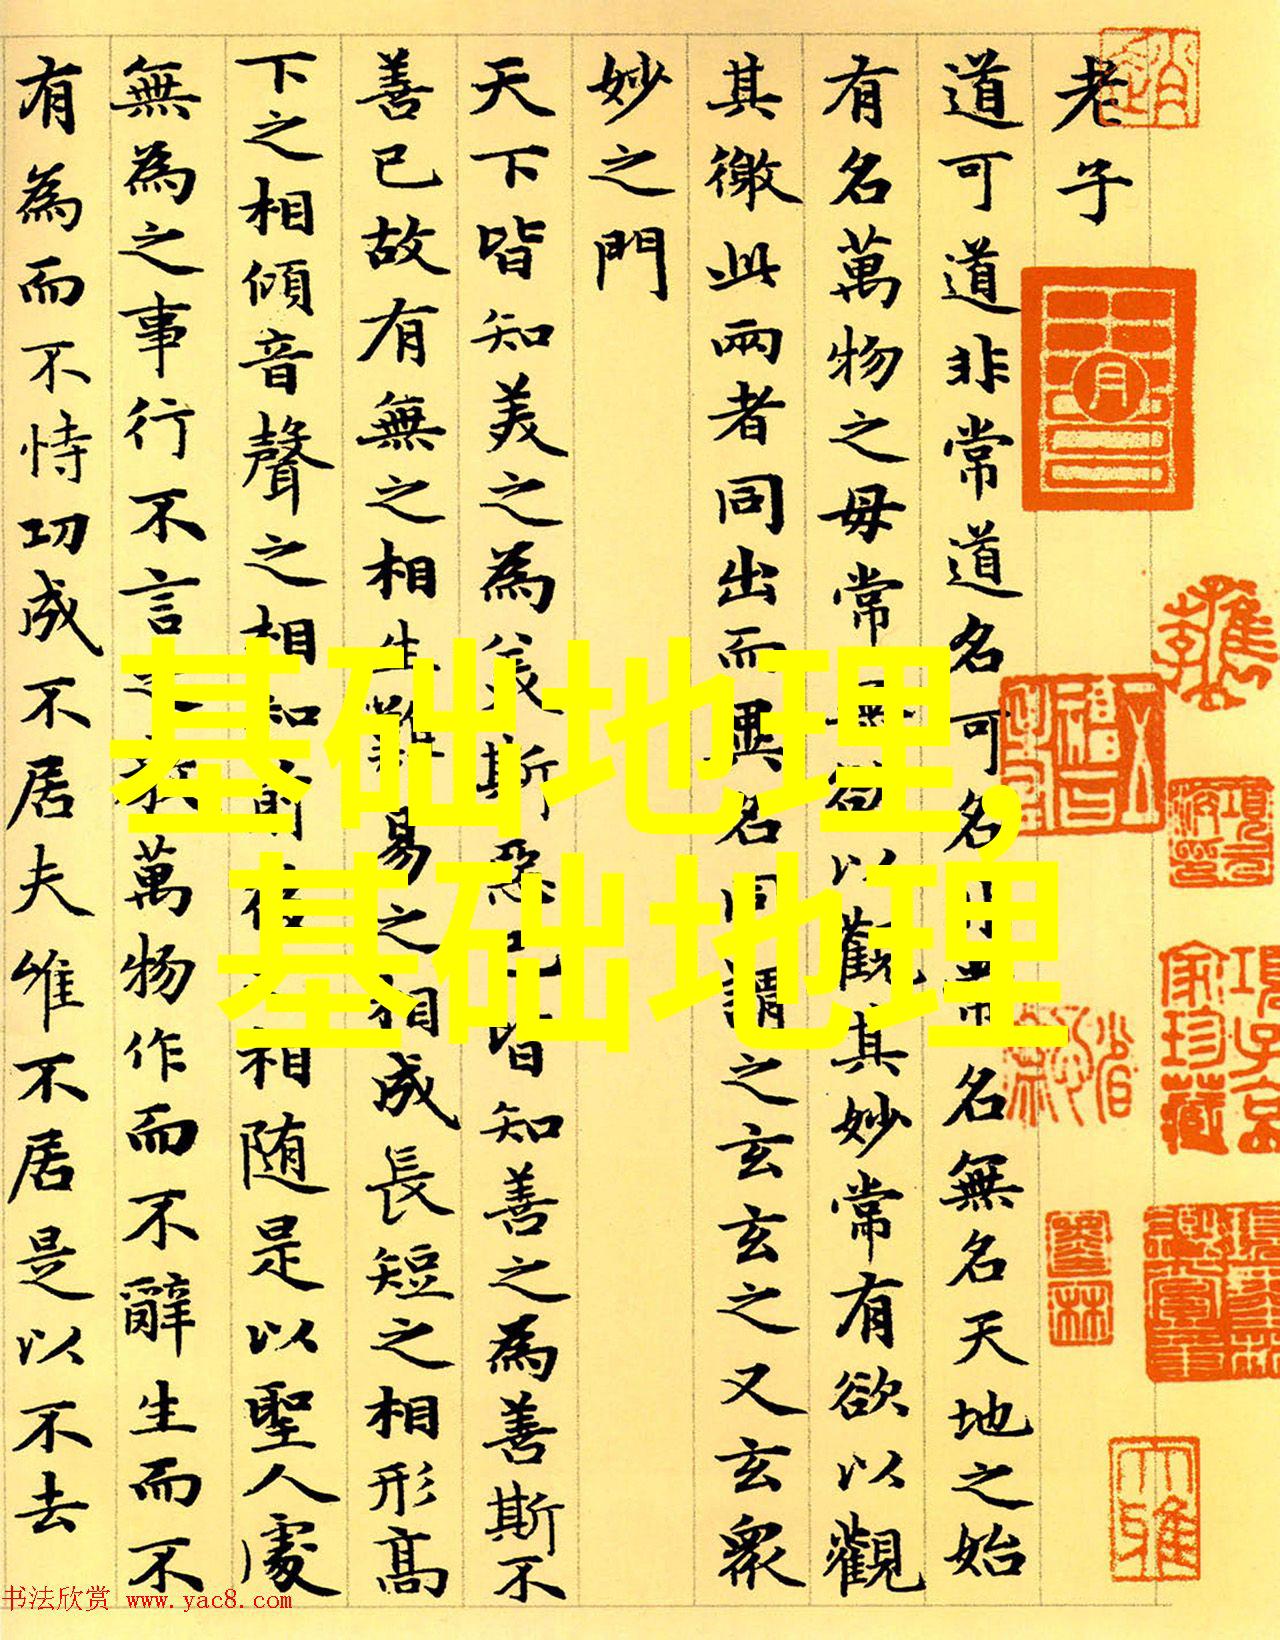 老子
道可道非常道名可名非常名無名天地之始
有名萬物之毋常無欲以觀其妙常有欲以觀
其徼此兩者同出而異名同謂之玄玄之又玄眾
妙之門
天下皆知美之為美斯惡已皆知善之為善斯不
善已故有無之相生難易之相成長短之相形高
下之相傾音聲之相和前後之相隨是以聖人處
無為之事行不言之教萬物作而不辭生而不
有為而不恃功成不居夫唯不居是以不去
基础地理,
基础地理
书法欣赏 www.yac8.com